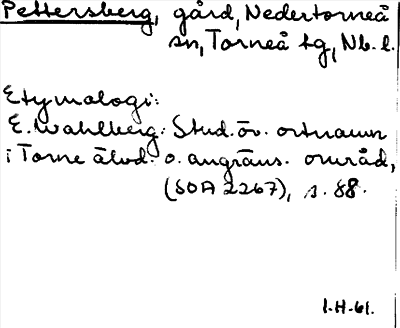 Pettersberg, gård, Nedertorneå
sn, Torneå tg, Nb. l.
Etymologi:
E. Wahlberg: Stud. öv. ortnamn
i Torne älvd. o. angräns. områd,
(SOA 2267), s. 88.
1.H.61.